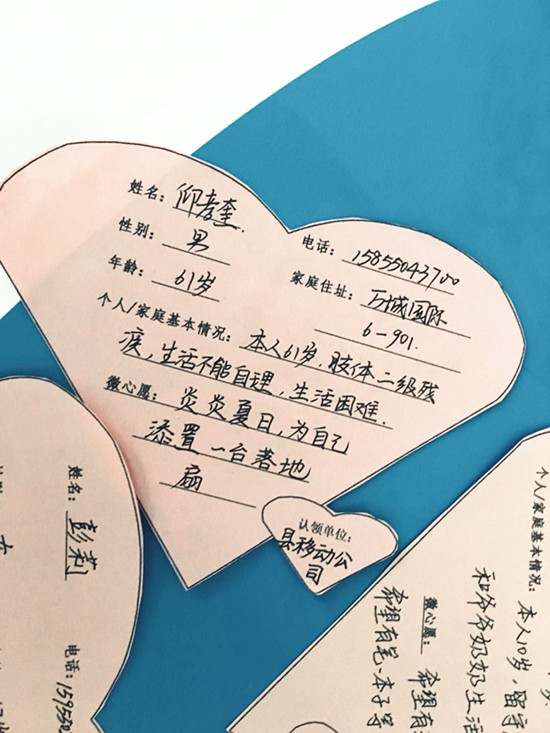 姓名：仰孝奎.
性别：男
年龄：61岁
电话：15855043700
家庭住址：万城国际
6-901.
个人/家庭基本情况：本人61岁，肢体二级残
疾，生活不能自理，生活困难.
微心愿：炎炎夏日，为自己
添置一台落地
扇
认领单位：
县移动公
司
姓名：彭莉
电话：159550
个人/家庭基本情况：本人10岁，留守
和爷爷奶奶生活
微心愿：希望有
希望有笔、本子等